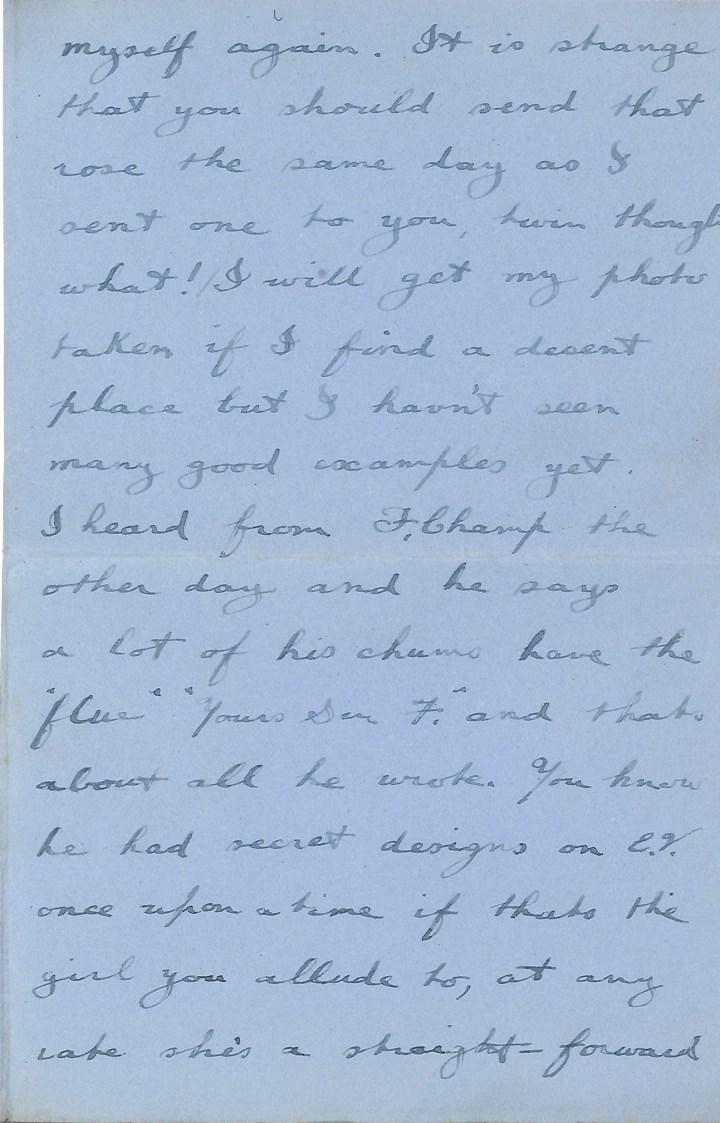 myself again. It is strange
that you should send that
rose the same day as I
sent one to you, twin though
what! I will get my photo
taken if I find a decent
place but I havn't seen
many good examples yet.
I heard from F. Champ the
other day and he says
a lot of his chums have the
"flue" "Yours Sin F." and thats
about all he wrote. You know
he had secret designs on E.V.
once upon a time if thats the
girl you allude to, at any
rate she's a straight-forward